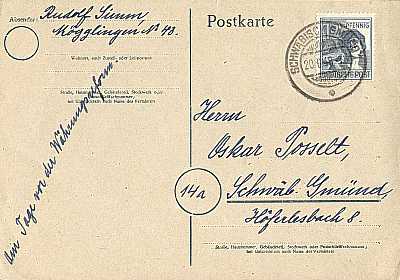 Absender:
Rudolf Simm,
Mögglingen No 48.
Wohnort, auch Zustell- oder Leitpostamt
Straße, Hausnummer, Gebäudeteil, Stockwerk oder
Postschließfachnummer,
bei Untermietern auch Name des Vermieters
Postkarte
PFENNIG
DEUTSCHE POST
SCHWÄBISCH GMÜND
Herrn
Oskar Posselt,
14a
Schwäb.-Gmünd,
Höferlesbach 8.
Straße, Hausnummer, Gebäudeteil, Stockwerk oder Postschließfachnummer,
bei Untermietern auch Name des Vermieters
Ein Tage vor der Währungsreform.